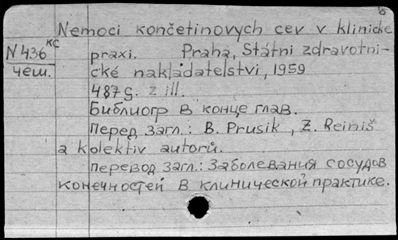 Nemoci končetinových cev v klinické
N 436 кс
чеш.
praxi. Praha, Státní zdravotni-
cké nakladatelství, 1959
487 s. z ill.
Библиогр в конце глав.
Перед загл.: B. Prusík, Z. Reiniš
a kolektiv autorů.
перевод загл.: Заболевания сосудов
конечностей в клинической практике.